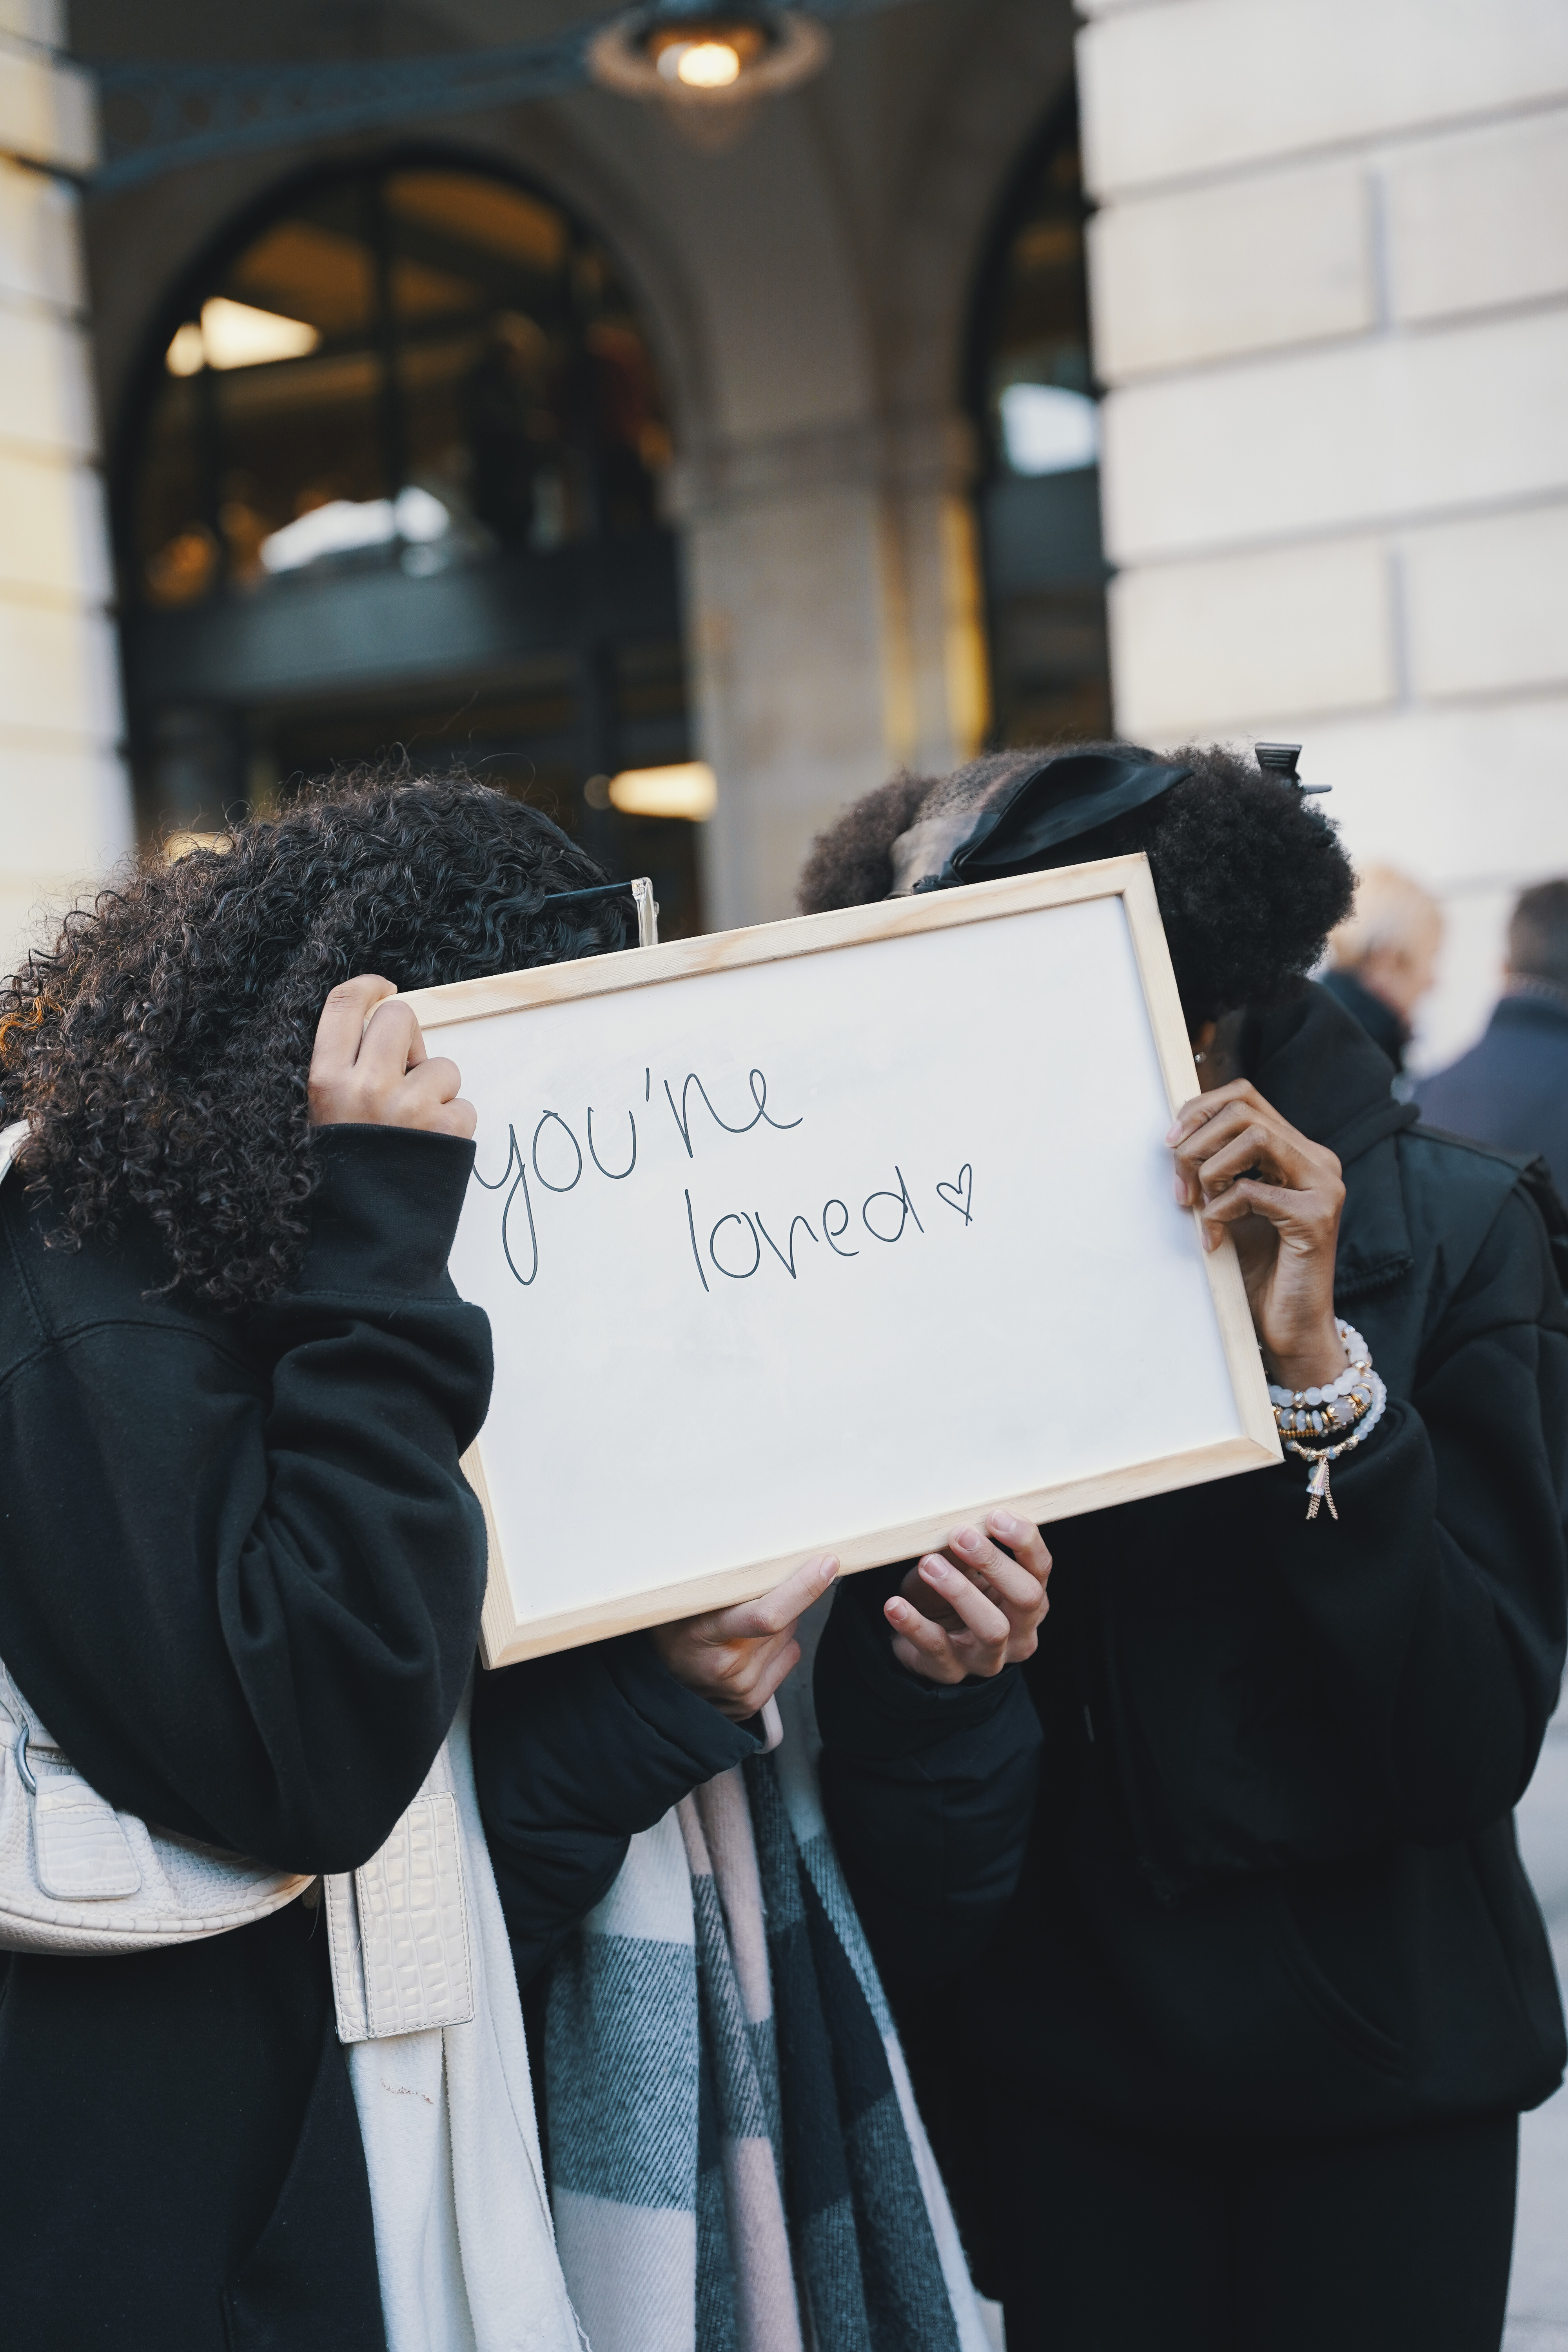 you're
loved ♡